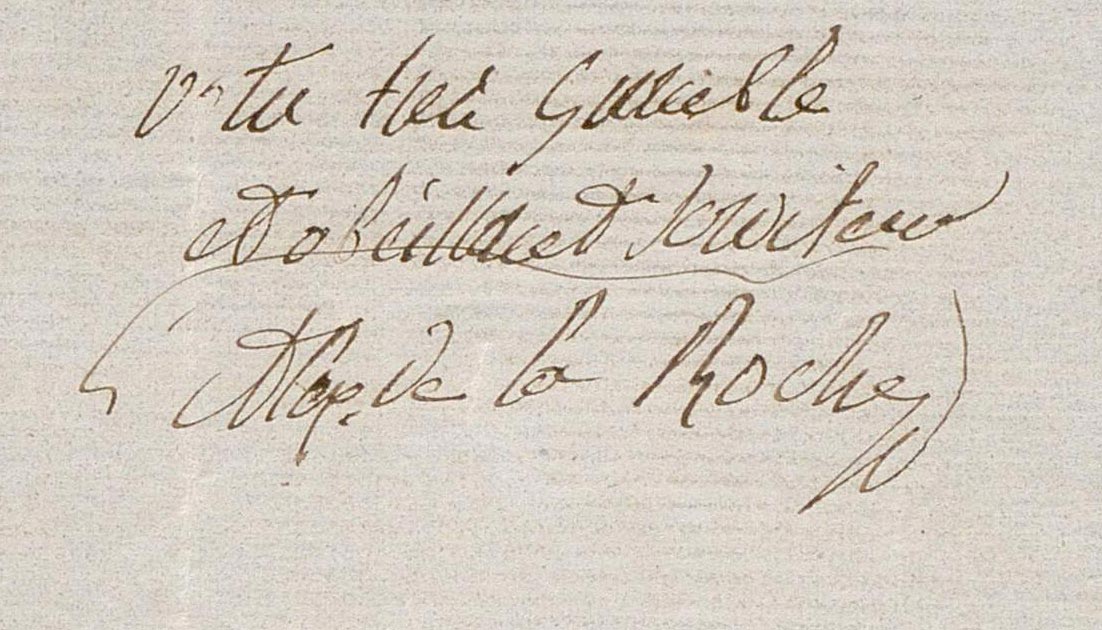 votre trèi humble
et obéissant serviteur
Alex. de la Roche